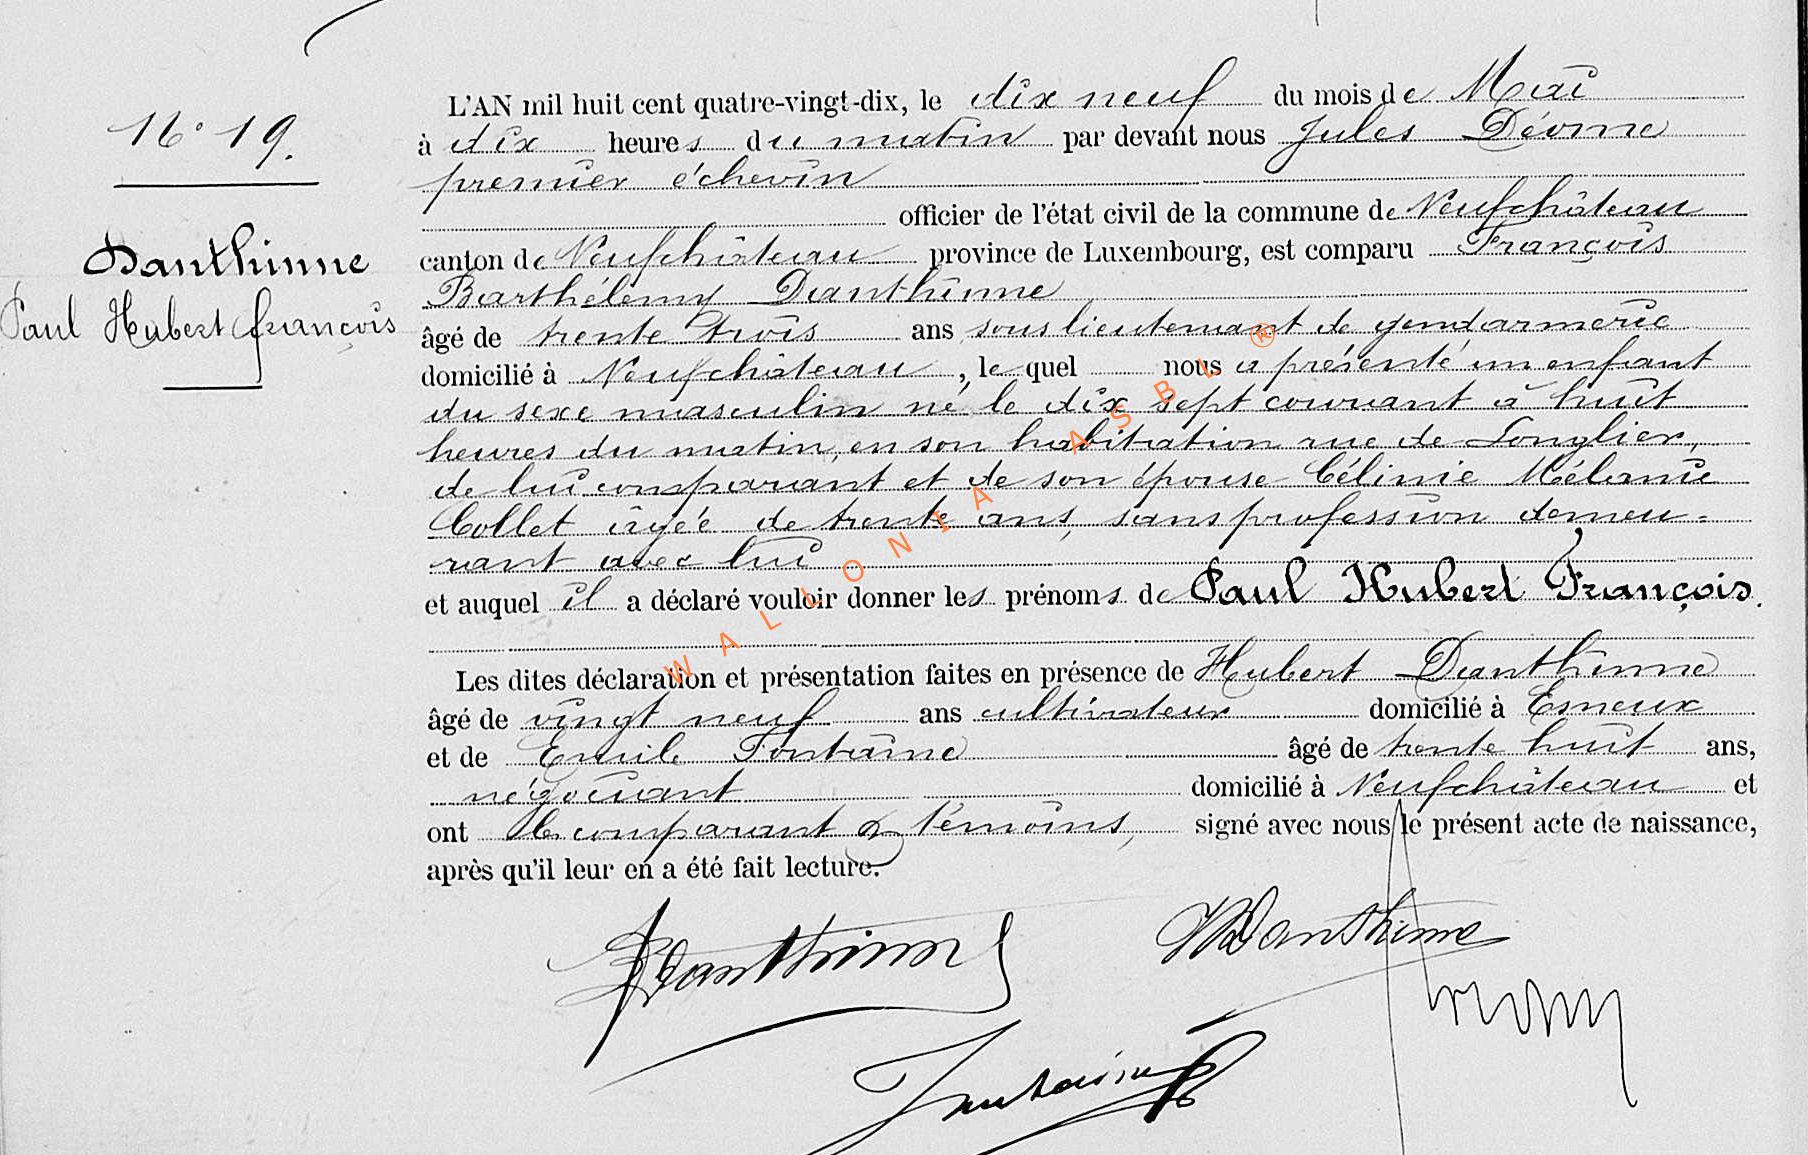 N° 19.
Danthinne
Paul Hubert François
L'AN mil huit cent quatre-vingt-dix, le dix neuf du mois de Mai
à dix heures du matin par devant nous Jules
premier échevin
officier de l'état civil de la commune de Neufchâteau
canton de Neufchâteau province de Luxembourg, est comparu François
Barthélemy Danthinne
âgé de trente trois ans sous lieutenant de gendarmerie
domicilié à Neufchâteau, lequel nous a présenté un enfant
du sexe masculin né le dix sept courant à huit
heures du matin, en son habitation rue de Longlier,
de lui comparant et de son épouse Célinie Mélanie
Collet âgée de trente ans, sans profession demeu-
rant avec lui
et auquel il a déclaré vouloir donner les prénoms de Paul Hubert François.
Les dites déclaration et présentation faites en présence de Hubert Danthinne
âgé de vingt neuf ans cultivateur domicilié à Esneux
et de Emile Fontaine âgé de trente huit ans,
négociant domicilié à Neufchâteau et
ont le comparant & témoins, signé avec nous le présent acte de naissance,
après qu'il leur en a été fait lecture.
Danthinne
HDanthinne
Fontaine
WALLONIA ASBL ®